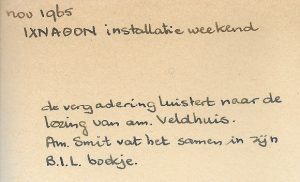 nov 1965
IXNAGON installatie weekend
de vergadering luistert naar de
lezing van am. Veldhuis.
Am. Smit vat het samen in zijn
B.I.L. boekje.